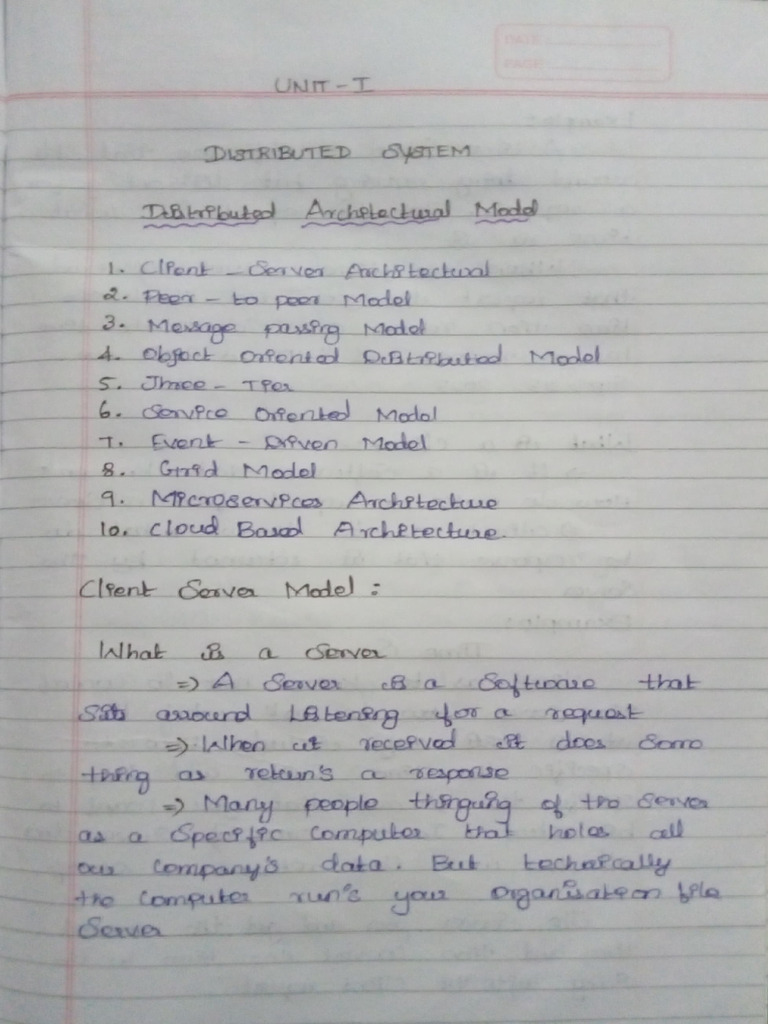 DATE:
PAGE:
UNIT - I
DISTRIBUTED SYSTEM
Distributed Architectural Model
1. Client - Server Architectural
2. Peer - to peer Model
3. Message passing Model
4. Object Oriented Distributed Model
5. Three - Tier
6. Service Oriented Model
7. Event - Driven Model
8. Grid Model
9. Microservices Architecture
10. Cloud Based Architecture.
Client Server Model :
What is a Server
=> A Server is a Software that
Sits around Listening for a request
=> When it received it does Some
thing as retun's a response
=> Many people thinguing of the Server
as a Specific Computer that holes all
our Company's data. But technically
the Computer run's your Organisation file
Server